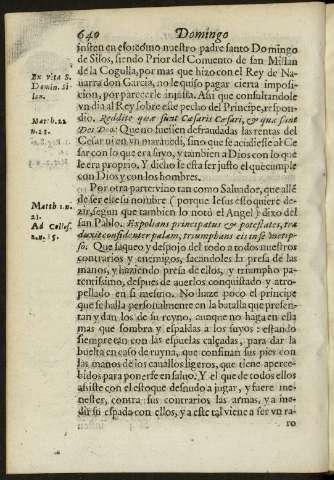 640 Domingo
insten en esso, como nuestro padre santo Domingo
de Silos, siendo Prior del Conuento de san Millan
de la Cogulla, por mas que hizo con el Rey de Na-
uarra don Garcia, no le quiso pagar cierta imposi-
cion, por parecerle injusta. Assi que consultandole
vn dia al Rey sobre este pecho del Principe, respon-
dio. Reddite quæ sunt Cæsaris Cæsari, & quæ sunt
Dei Deo: Que no fuessen defraudadas las rentas del
Cesar ni en vn marauedi, sino que se acudiesse al Ce
sar con lo que era suyo, y tambien a Dios con lo que
le era proprio. Y dicho le esta ser justo el que cumple
con Dios y con los hombres.
Por otra parte vino tan como Saluador, que allẽ
de ser este su nombre (porque Iesus esto quiere de-
zir, segun que tambien lo notò el Angel) dixo del
san Pablo. Expolians principatus & potestates, tra
duxit confidenter palam, triumphans eos in semetip-
so. Que saqueo y despojo del todo a todos nuestros
contrarios y enemigos, sacandoles la presa de las
manos, y haziendo presa de ellos, y triumpho pa-
tentissimo, despues de auerlos conquistado y atro-
pellado en si mesmo. No haze poco el principe
que se halla personalmente en la batalla que presen-
tan y dan los de su reyno, aunque no haga en ella
mas que sombra y espaldas a los suyos: estando
siempre tan con las espuelas calçadas, para dar la
buelta en caso de ruyna, que confinan sus pies con
las manos de los cauallos ligeros, que tiene aperce-
bidos para ponerse en saluo. Y el que de todo ellos
assiste con el estoque desnudo a jugar, y fuere me-
nester, contra sus contrarios las armas, y a me-
dir su espada con ellos, y a este tal viene a ser vn ra-
ro
Ex vita S.
Domin. Si
lon.
Mat. b. 22
n. 21.
Matth 1. n.
21.
Ad Coloss.
2. n. 15.